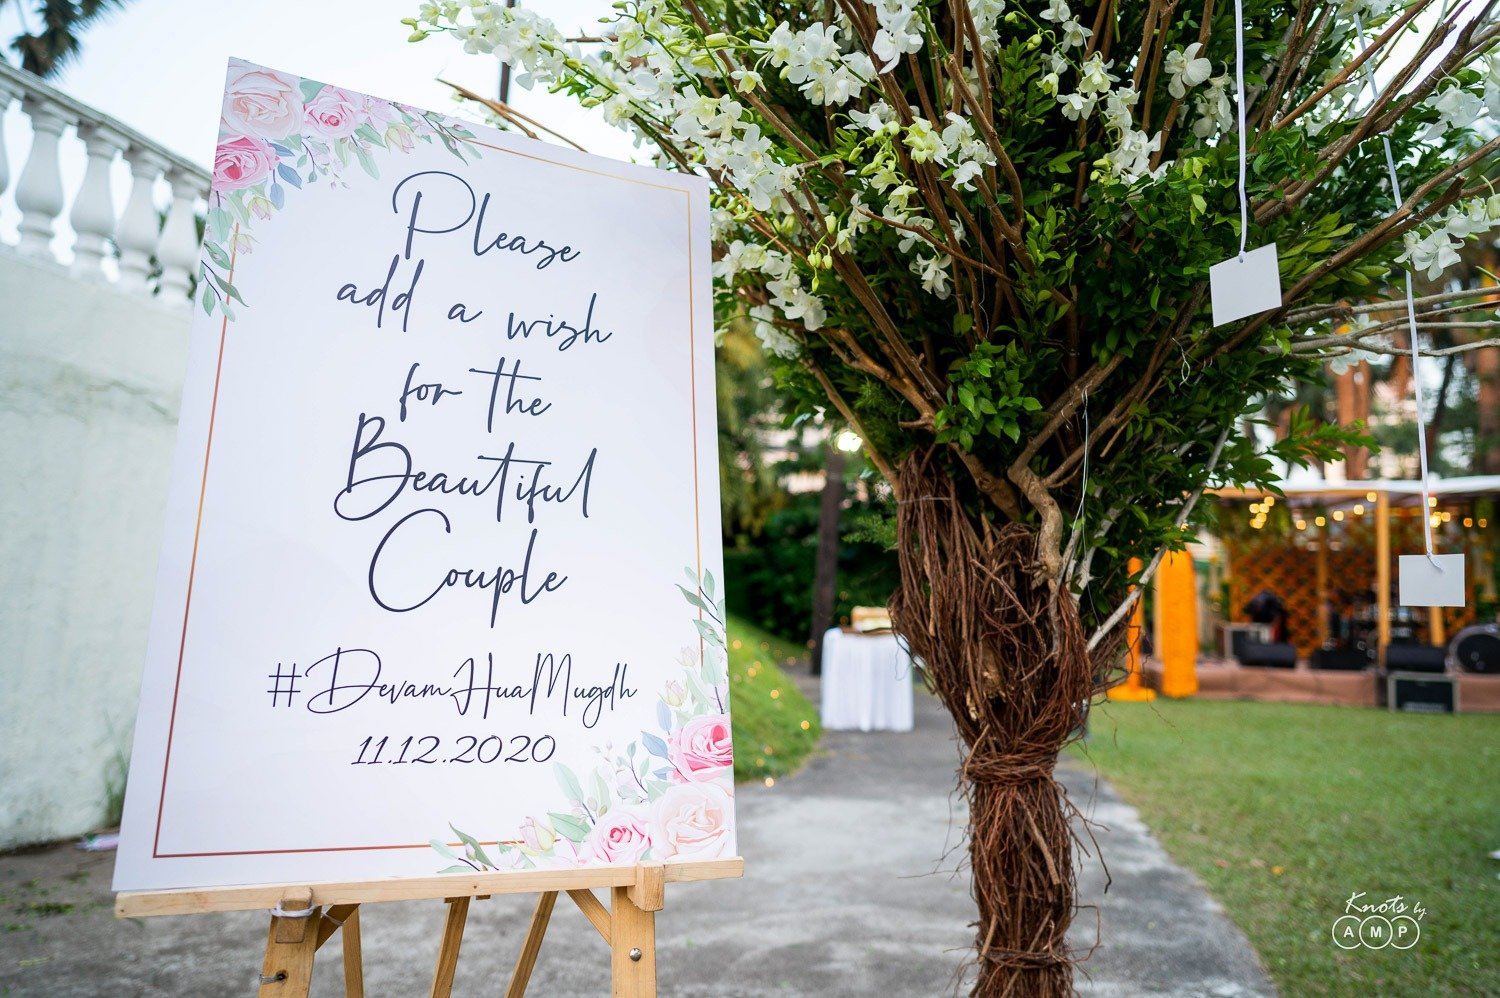 Please
add a wish
for the
Beautiful
Couple
#DevamHuaMugdh
11.12.2020
Knots by
AMP